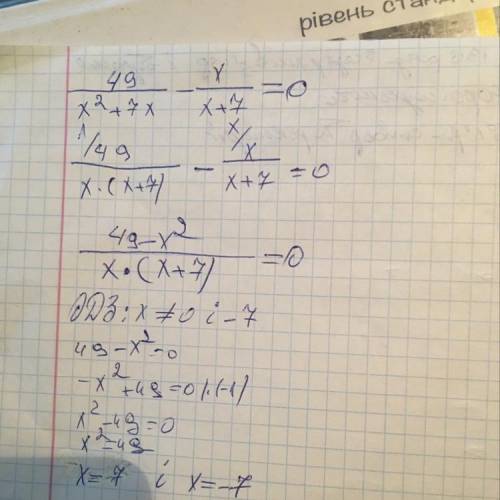 рівень станд
49/(x²+7x) - x/(x+7) = 0
1/49/(x·(x+7)) - x/x/(x+7) = 0
(49-x²)/(x·(x+7)) = 0
ОДЗ: x ≠ 0 і -7
49-x²=0
-x²+49=0 |·(-1)
x²-49=0
x²=49
x=7 і x=-7